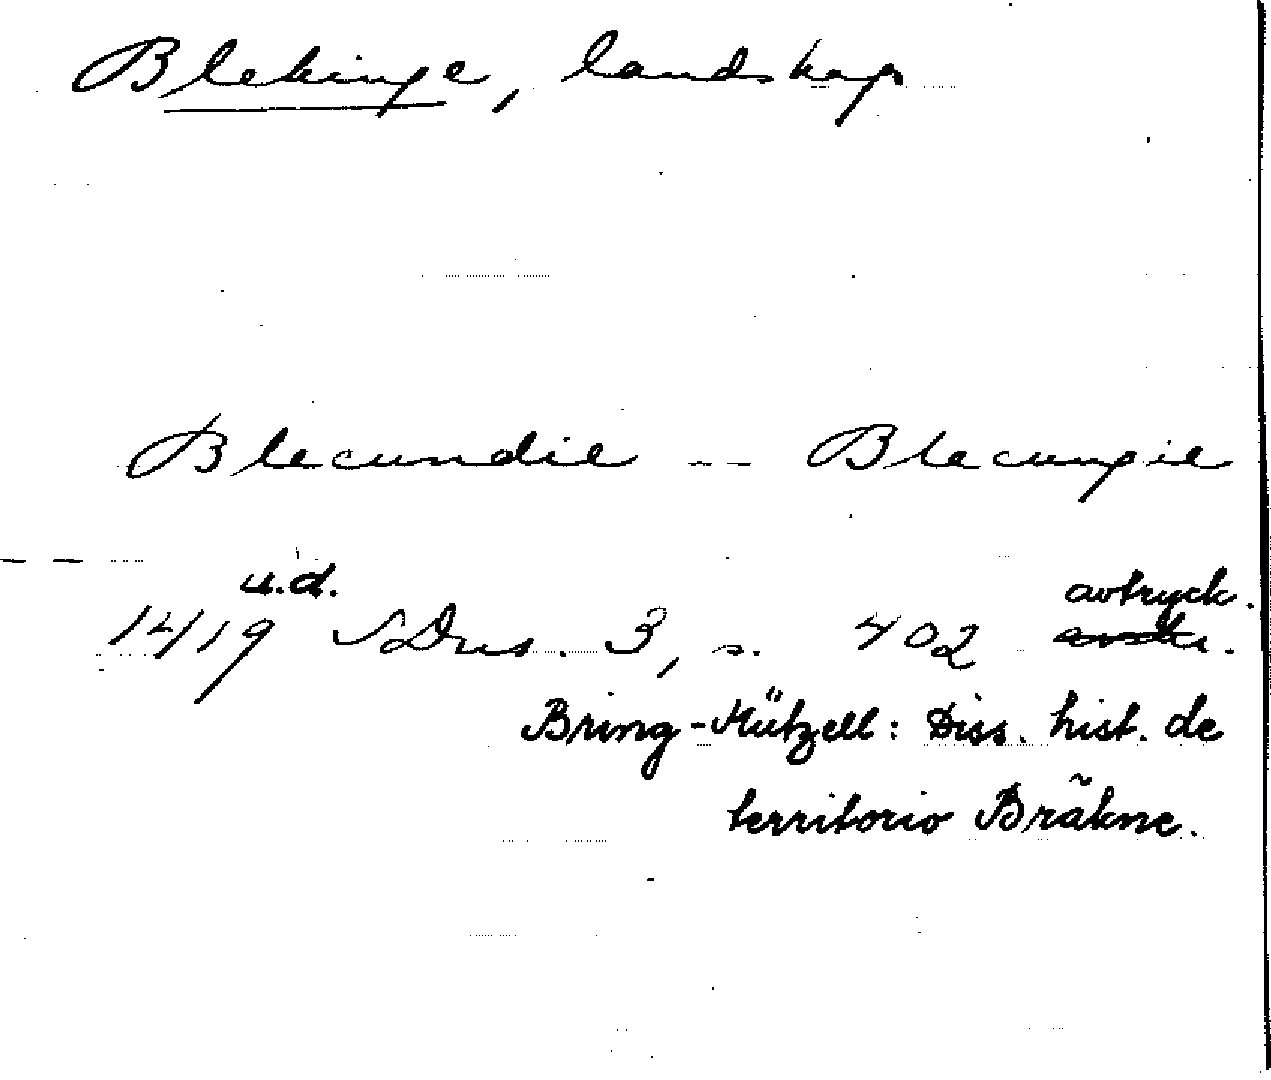 Blekinge, landskap
Blecundie -- Blecungie
u.d. avtryck.
1419 SDns. 3, s. 402
Bring-Mützell: Diss. hist. de
territorio Bräkne.